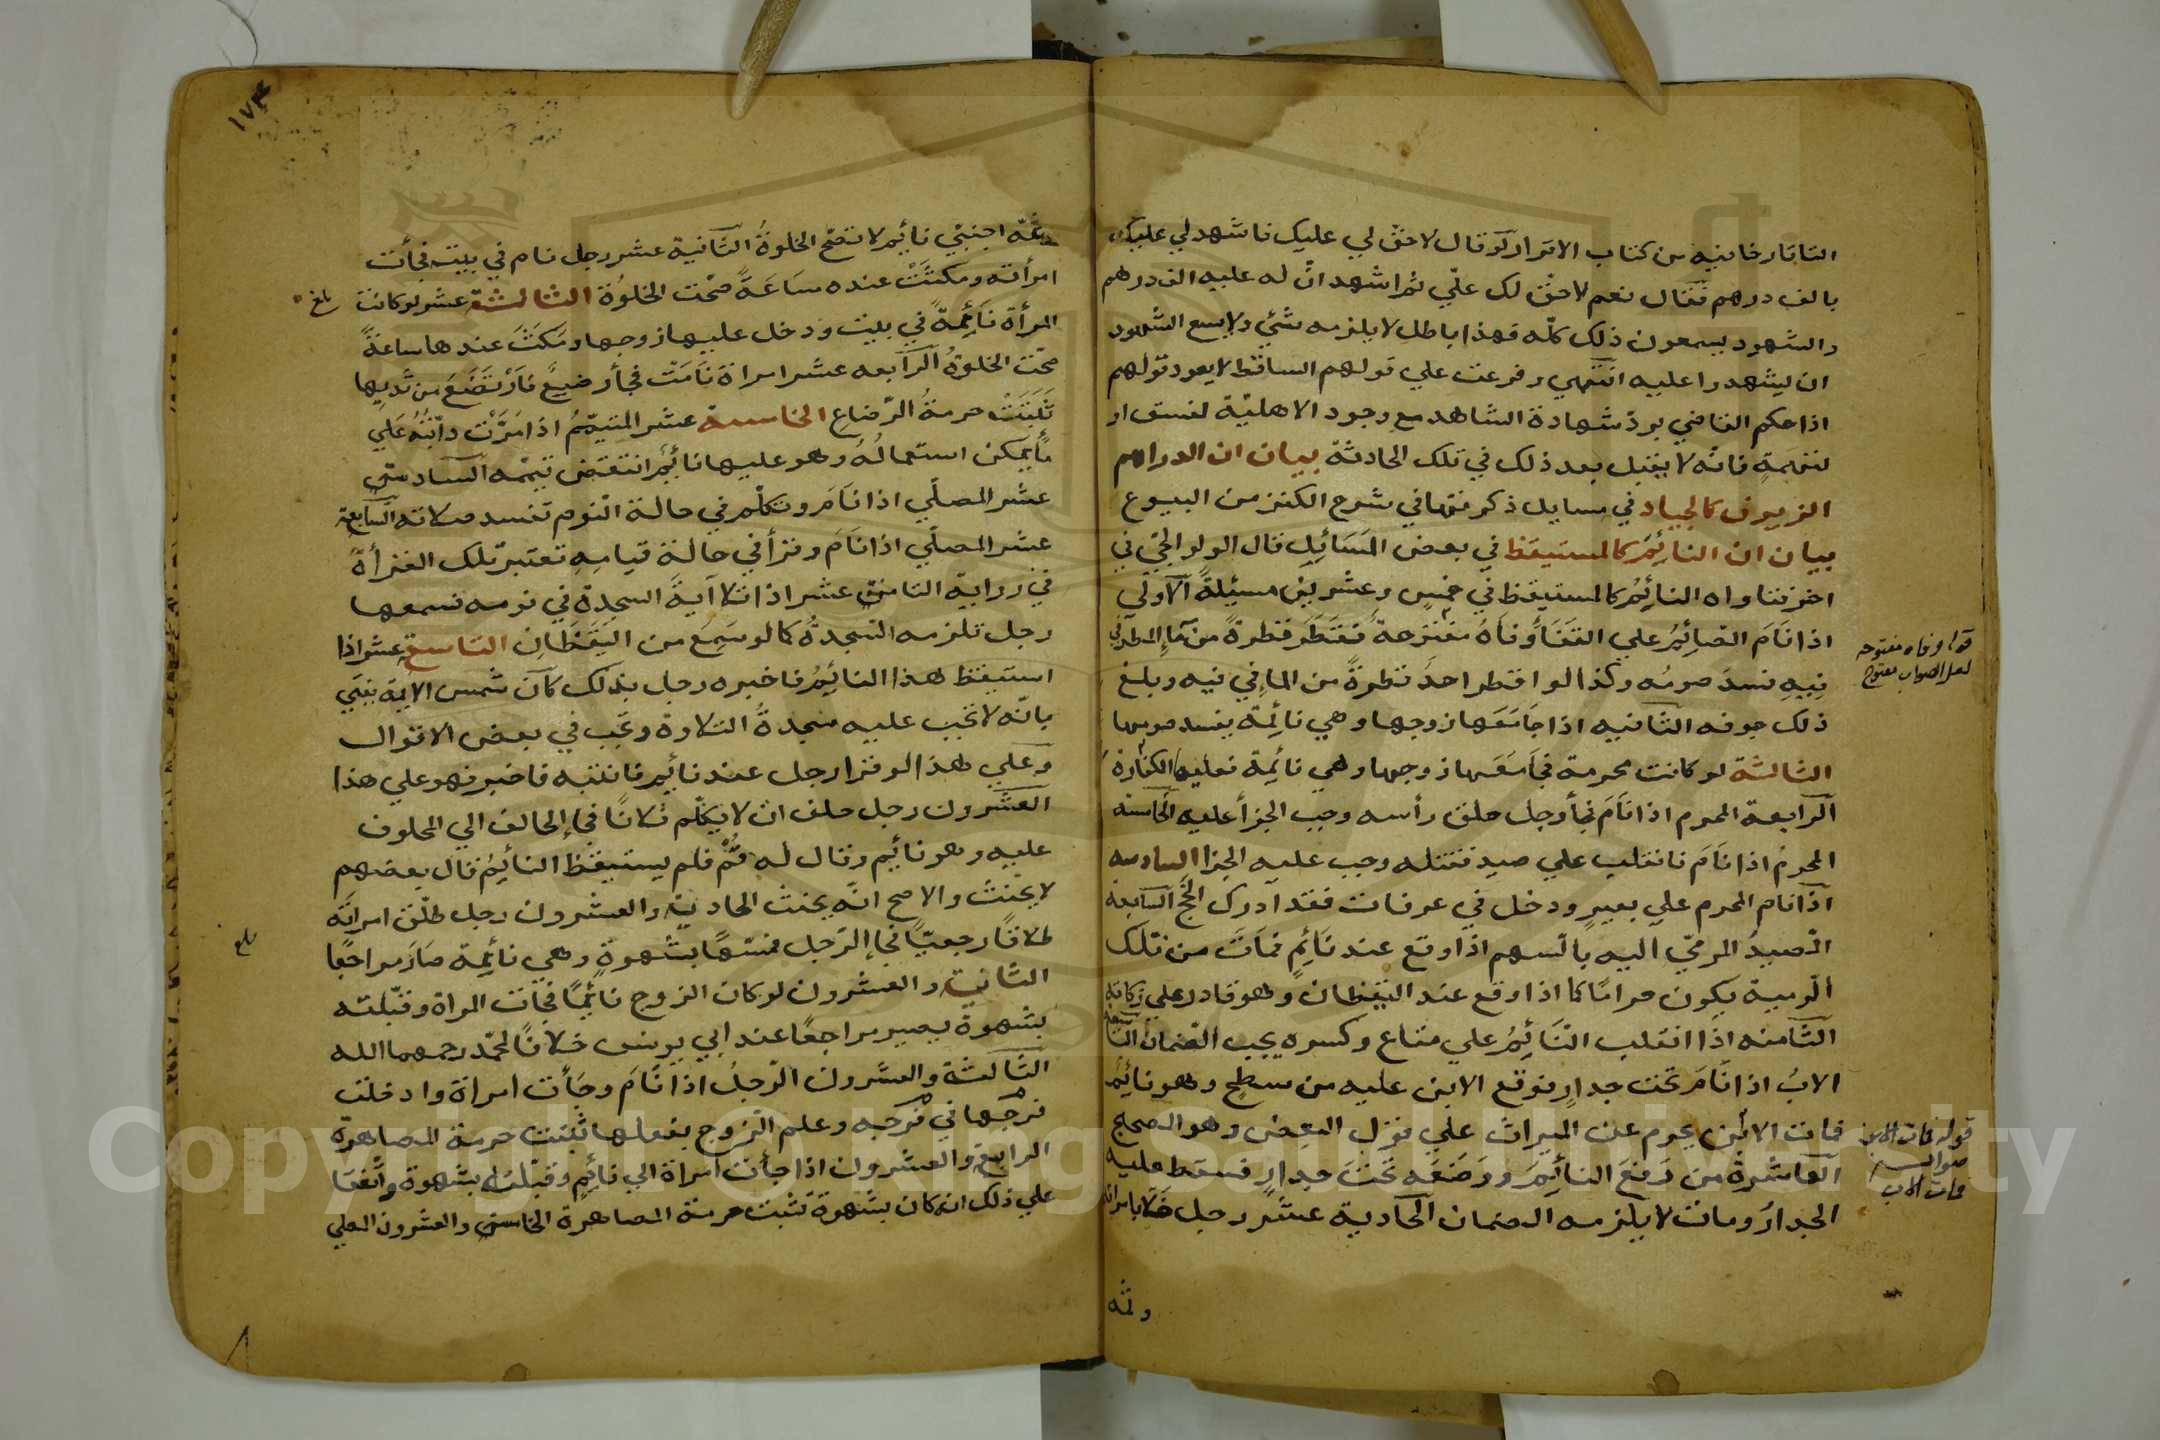 التاتارخانيه من كتاب الاقرار لو قال لا حق لي عليك فاشهد لي عليك
بالف درهم فقال نعم لا حق لك علّي ثم اشهد انّ له عليه الف درهم
والشهود يسمعون ذلك كلّه فهذا باطل لا يلزمه شئي ولا يسع الشهود
ان يشهدوا عليه انتهي وفرعت علي قولهم الساقط لا يعود قولهم
اذا حكم القاضي بردّ شهادة الشاهد مع وجود الاهليّة لفسق او
لتهمةٍ فانّه لا يقبل بعد ذلك في تلك الحادثة بيان ان الدراهم
الزيوف كالجياد في مسايل ذكرنتها في شرح الكنز من البيوع
بيان ان النائِمَ كالمستيقظ في بعض المَسَائِلِ قال الولوالجيّ في
اخر فتاواه النائِمُ كالمستيقظ في خمسٍ وعشرين مسئِلةً الاولي
اذا نَامَ الصّائِمُ علي القَفَا وَفاهُ مفتوحةُ فقَطَرَ قطرةً من مآءِ المطرفي
فيِهِ فسدَ صومُه وكذا لو اقطر احدٌ قطرةً من المآءِ في فيه وبلغ
ذلك جوفه الثانيه اذا جَامَعَها زوجها وهي نائِمة يفسد صومها
الثالثة لو كانت محرمة فجَامَعَها زوجها وهي نائِمة فعليها الكفارة
الرابعة المحرم اذا نَامَ فجأ رجل حلق رأسه وجب الجزأ عليه الخامسة
المحرمُ اذا نَامَ فانقلب علي صيد فقتله وجب عليه الجزا السادسه
اذا نام المحرم علي بعيرٍ ودخل في عرفات فقد ادرك الحج السابعة
الصيدُ المرميّ اليه بالسهم اذا وقع عند نَائِمٍ فمَاتَ من تلك
الرمية يكون حرامًا كما اذا وقع عند اليَقظان وهو قادر علي زكاته
الثامنه اذا انقلب النَائِمُ علي متاع وكسره يجب الضمان التاسعة
الابُ اذا نَامَ تحت جدارٍ فوقع الابن عليه من سطحٍ وهو نائِمٌ
فمات الابن يحرم عن الميراث علي قول البعض وهو الصحيح
العاشرة من رَفعَ النائِمَ ووَضَعَه تَحتَ جدارٍ فسقط عليه
الجدارُ ومات لا يلزمه الضمان الحادية عشر رجل خَلَا بامراة
وثمه
قوله وفاه مفتوحه
لعل الصواب مفتوح
قوله فمات الابن
صوابه
فمات الاب
١٧٣
وثمّه اجنبيّ نائِم لا تصح الخلوةُ الثانية عشر رجل نام في بيته فجأت
امرأته ومكثَتْ عنده سَاعَةً صحّت الخلوَة الثالثة عشر لو كانت
بلغ
المرأة نَائِمةً في بيت ودخل عليها زوجها ومَكثَ عندها ساعةً
صحّت الخلوةُ الرابعه عشر امراة نَامَتْ فجأ رضيعٌ فَارْتَضَعَ من ثديها
ثَبَتَتْ حرمةُ الرّضاعِ الخامسة عشر المتيمّمُ اذا مَرَّتْ دابّتُهُ عَلي
مأٍ يمكن استعمالُهُ وهو عليها نائِمٌ انتقض تيمّمه السادسة
عشر المصلّي اذا نَامَ وتكلّم في حالة النّوم تفسد صلاته السابعة
عشر المصلّي اذا نَامَ وقرأ في حالة قيامِهِ تعتبر تلك القرأةُ
في رواية الثامنة عشر اذا تلا آيةَ السجدةِ في نومه فسمعها
رجل تلزمه السّجدةُ كما لو سَمِعَ من اليَقظَانِ التاسعة عشر اذا
استيقظ هذا النائِمُ فاخبره رجل بذلك كان شمس الايمة يفتي
بانّه لا تجب عليه سجدةُ التلاوة وتجب في بعض الاقوال
وعلي هذا لو قرا رجل عند نائِمٍ فانتبه فاخبر فهو علي هذا
العشرون رجل حلف ان لا يكلّم فُلانًا فجاءَ الحالف الي المحلوف
عليه وهو نائِم وقال له قُمْ فلم يستيقظ النائِمُ قال بعضهم
لا يحنث والاصح انّه يحنث الحادية والعشرون رجل طلّق امراته
بلغ
طلاقًا رجعيًّا فجاءَ الرّجل فمسّها بشهوةٍ وهي نائِمة صَارَ مراجعًا
الثانية والعشرون لو كان الزوج نائِمًا فجات المراة وقبّلته
بشهوة يصير مراجعًا عند ابي يوسف خلافًا لمحمّد رحمهما الله
الثالثة والعشرون الرّجلُ اذا نَامَ وجأت امراة وادخلت
فرجها في فرجه وعلم الزوج بفعلها ثبتت حرمة المصاهرة
الرابعة والعشرون اذا جأت امراة الي نائِمٍ وقبّلته بشهوة واتّفقا
علي ذلك ان كان بشهوة تثبت حرمة المصاهرة الخامسة والعشرون المصلي